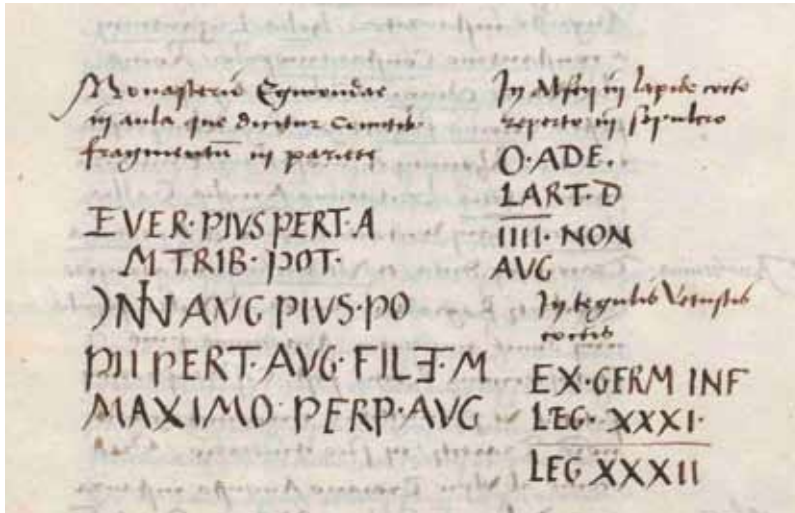 Monasterio Egmondae
in aula que dicitur Comitis
fragmentum in pariete
EVER·PIVS PERT·A
M TRIB·POT·
AVG PIVS·PO
PII PERT·AVG·FIL·M
MAXIMO PERP·AVG
In in lapide cocto
reperto in sepulcro
O·ADE·
LART·D
IIII·NON
AVG
In tegulis Vetustis
coctis
EX·GERM INF
LEG·XXXI·
LEG XXXII